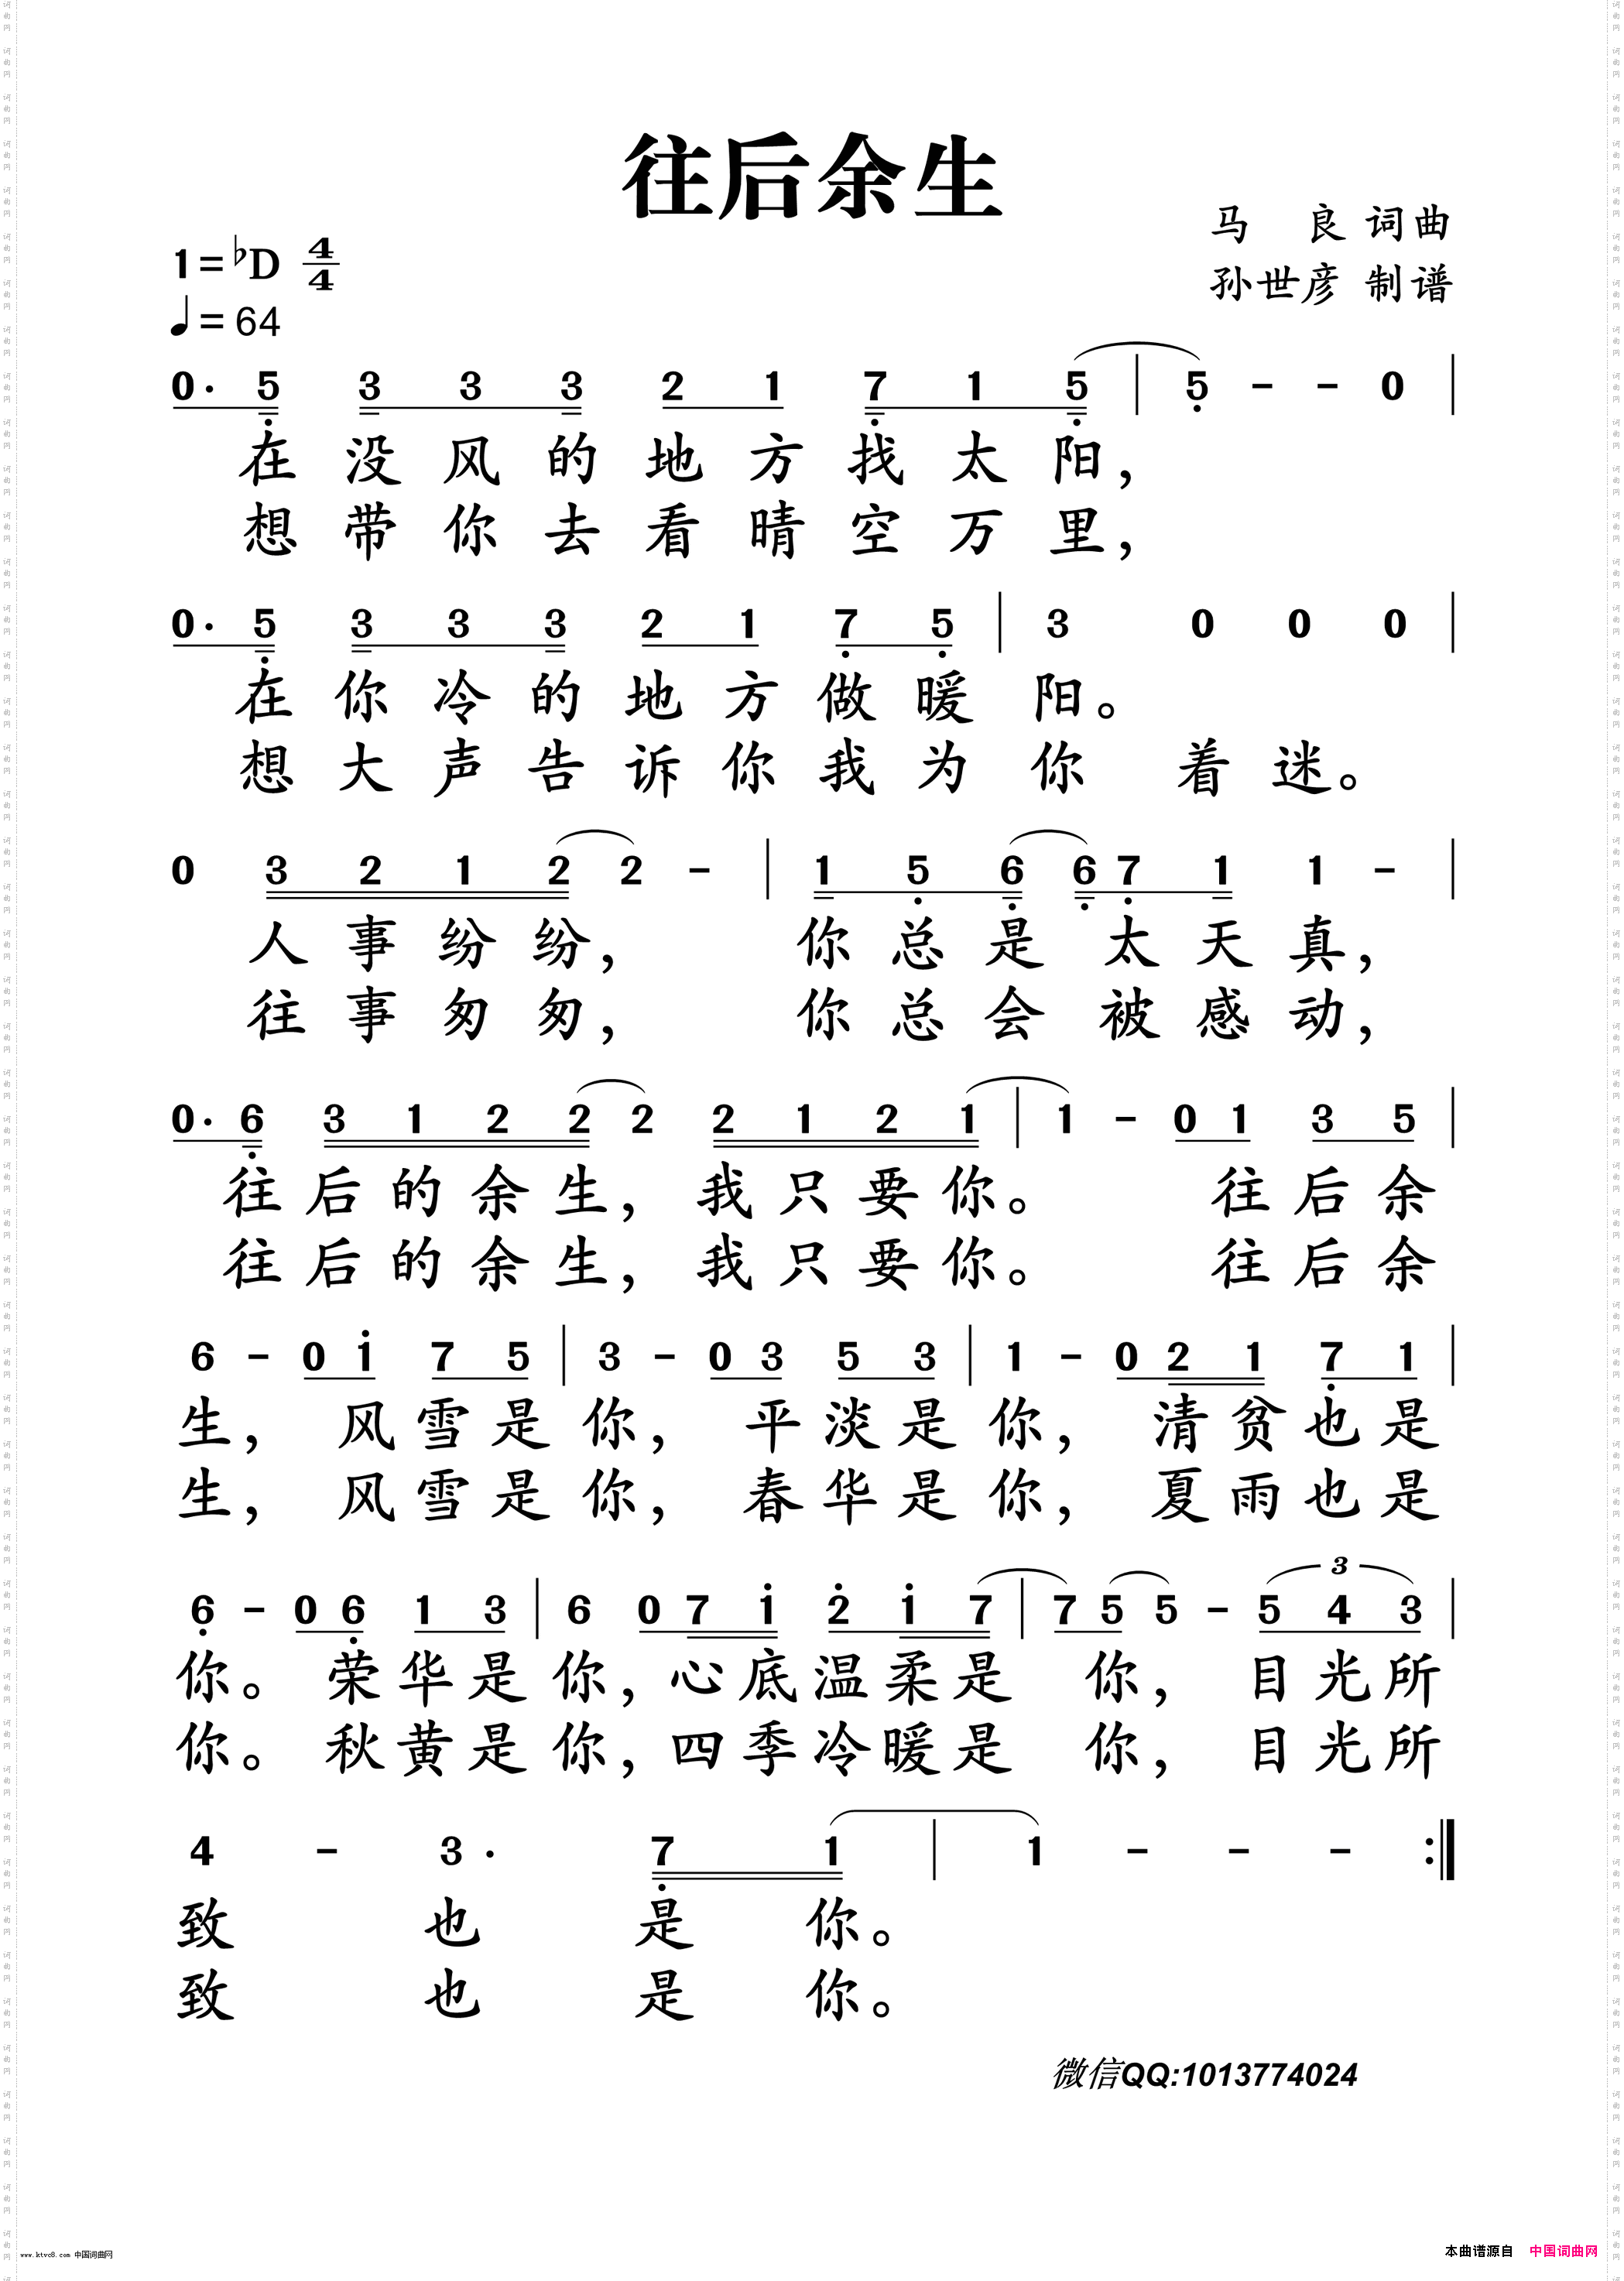 往后余生
马 良 词曲
1=♭D 4/4
孙世彦 制谱
♩= 64
0· 5 3 3 3 2 1 7 1 5 | 5 - - 0 |
在没风的地方找太阳，
想带你去看晴空万里，
0· 5 3 3 3 2 1 7 5 | 3 0 0 0 |
在你冷的地方做暖阳。
想大声告诉你我为你 着迷。
0 3 2 1 2 2 - | 1 5 6 6 7 1 1 - |
人事纷纷， 你总是太天真，
往事匆匆， 你总会被感动，
0· 6 3 1 2 2 2 2 1 2 1 | 1 - 0 1 3 5 |
往后的余生，我只要你。 往后余
往后的余生，我只要你。 往后余
6 - 0 1 7 5 | 3 - 0 3 5 3 | 1 - 0 2 1 7 1 |
生， 风雪是你， 平淡是你， 清贫也是
生， 风雪是你， 春华是你， 夏雨也是
6 - 0 6 1 3 | 6 0 7 1 2 1 7 | 7 5 5 - 3 5 4 3 |
你。 荣华是你，心底温柔是 你， 目光所
你。 秋黄是你，四季冷暖是 你， 目光所
4 - 3· 7 1 | 1 - - - :‖
致 也 是 你。
致 也 是 你。
微信QQ:1013774024
www.ktvc8.com 中国词曲网
本曲谱源自 中国词曲网